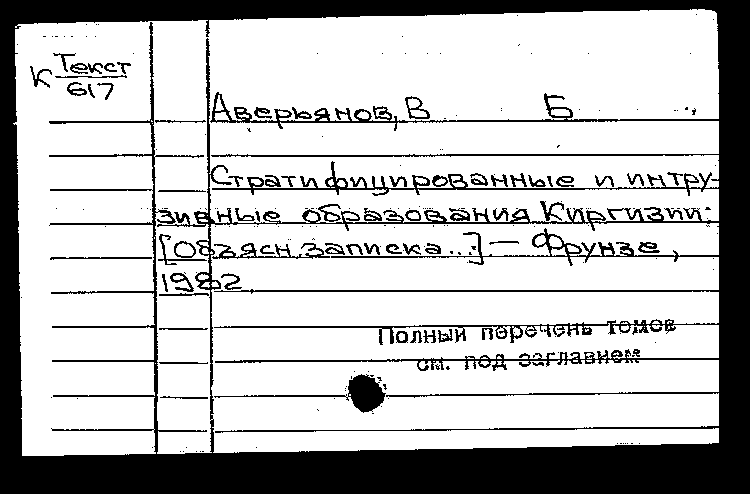 К Текст
617
Аверьянов, В Б
Стратифицированные и интру-
зивные образования Киргизии:
[Объясн. записка...] — Фрунзе,
1982.
Полный перечень томов
см. под заглавием